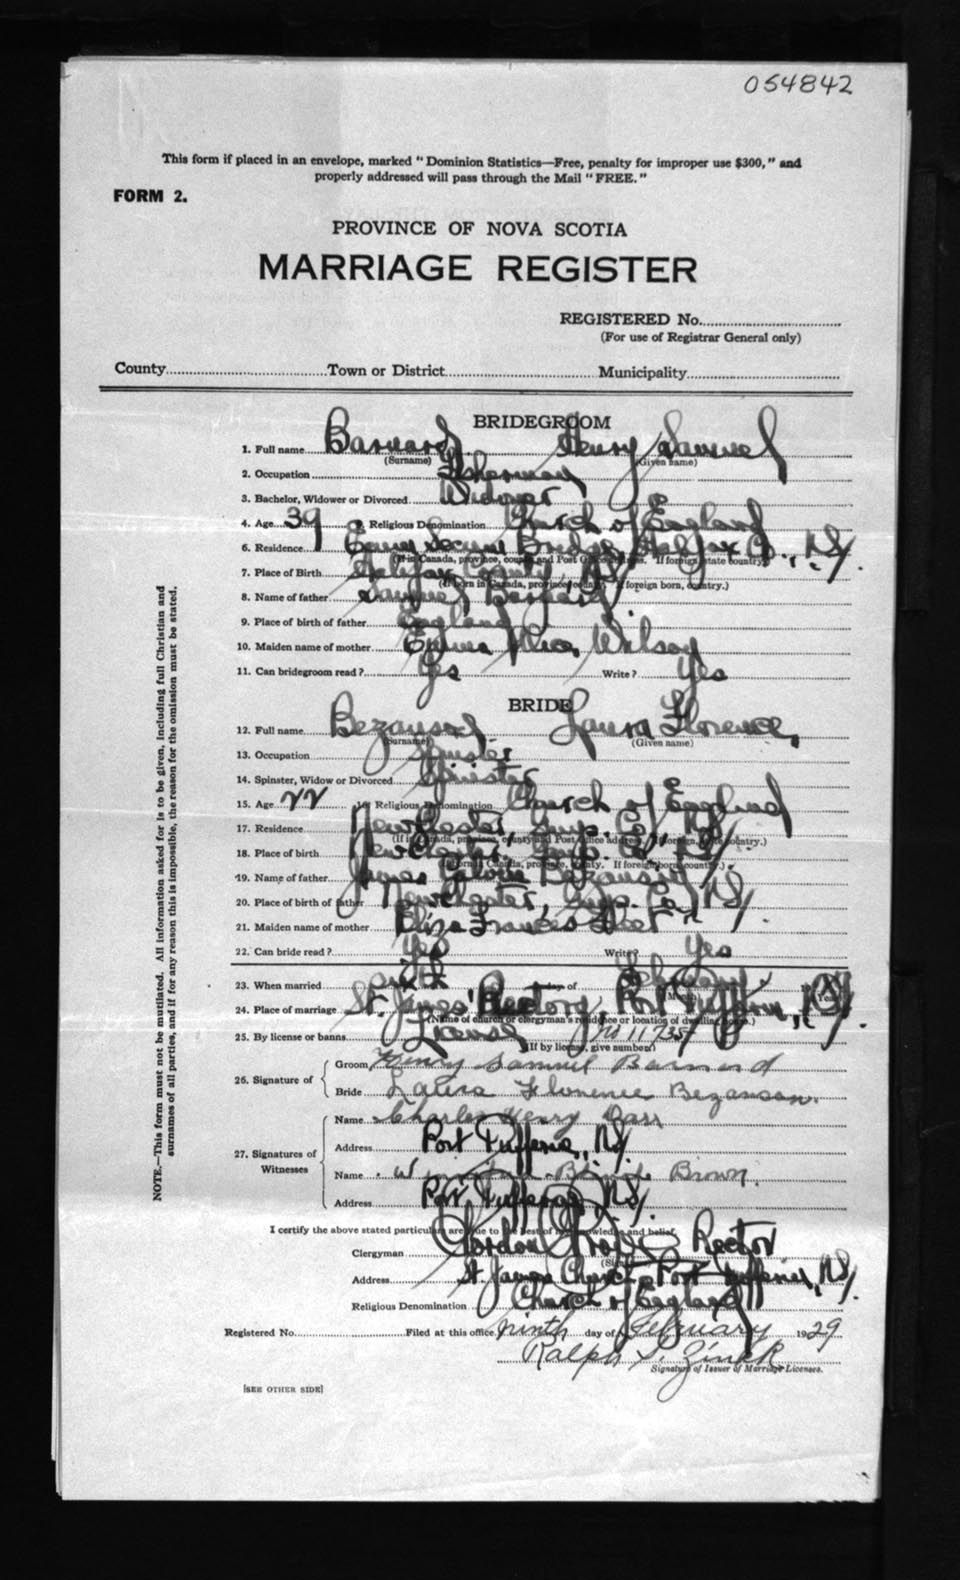 054842
This form if placed in an envelope, marked "Dominion Statistics—Free, penalty for improper use $300," and
properly addressed will pass through the Mail "FREE."
FORM 2.
PROVINCE OF NOVA SCOTIA
MARRIAGE REGISTER
REGISTERED No.
(For use of Registrar General only)
County Town or District Municipality
NOTE.—This form must not be mutilated. All information asked for is to be given, including full Christian and
surnames of all parties, and if for any reason this is impossible, the reason for the omission must be stated.
BRIDEGROOM
1. Full name Barnard Henry Samuel
(Surname) (Given name)
2. Occupation Fisherman
3. Bachelor, Widower or Divorced Widower
4. Age 39 Religious Denomination Church of England
6. Residence Ecum Secum Bridge, Halifax Co., N.S.
(If in Canada, province, county and Post Office address. If foreign state country.)
7. Place of Birth Halifax County, N.S.
(If born in Canada, province, county. If foreign born, country.)
8. Name of father Samuel Barnard
9. Place of birth of father England
10. Maiden name of mother Emma Wilson
11. Can bridegroom read? Yes Write? Yes
BRIDE
12. Full name Bezanson Laura Florence
(Surname) (Given name)
13. Occupation Spinster
14. Spinster, Widow or Divorced Spinster
15. Age 22 16. Religious Denomination Church of England
17. Residence Newchester, Guys. Co., N.S.
(If in Canada, province, county and Post Office address. If foreign, state country.)
18. Place of birth Newchester, Guys. Co., N.S.
(If born in Canada, province, county. If foreign born, country.)
19. Name of father James Bezanson
20. Place of birth of father Newchester, Guys. Co., N.S.
21. Maiden name of mother Eliza Frances Fleet
22. Can bride read? Yes Write? Yes
23. When married day of February
(Month) (Year)
24. Place of marriage St. James' Rectory, Port Dufferin, N.S.
(Name of church or clergyman's residence or location of dwelling house.)
25. By license or banns License
(If by license, give number)
26. Signature of
Groom Henry Samuel Barnard
Bride Laura Florence Bezanson.
27. Signatures of
Witnesses
Name Charles Henry
Address Port Dufferin, N.S.
Name Brown.
Address Port Dufferin, N.S.
I certify the above stated particulars are true to the best of my knowledge and belief.
Clergyman Gordon Rector
Address St. James Church, Port Dufferin, N.S.
Religious Denomination Church of England
Registered No. Filed at this office ninth day of February 1929
Ralph Zink
Signature of Issuer of Marriage Licenses.
[SEE OTHER SIDE]